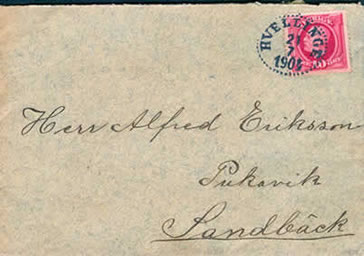 HVELLINGE
21
7
1904
Herr Alfred Eriksson
Pukavik
Sandbäck